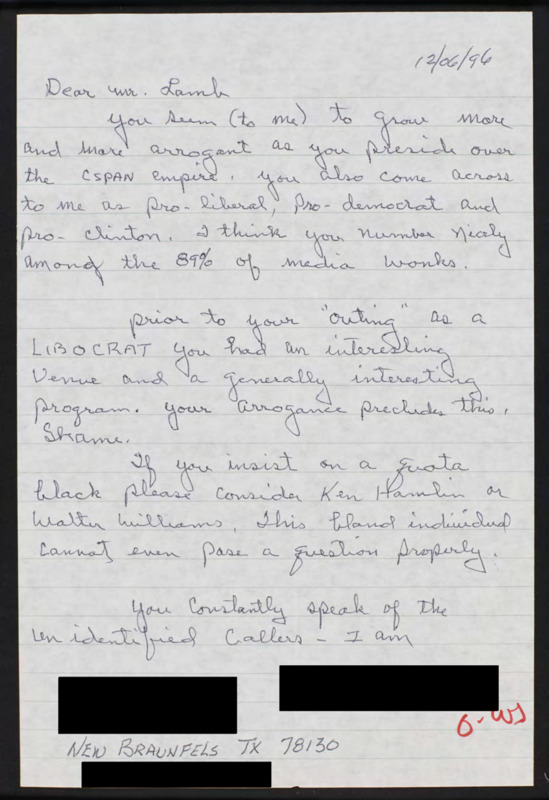 12/06/96
Dear Mr. Lamb
You seem (to me) to grow more
and more arrogant as you preside over
the CSPAN empire. You also come across
to me as pro-liberal, pro-democrat and
pro-Clinton. I think you number nicely
among the 89% of media wonks.
prior to your "outing" as a
LIBOCRAT you had an interesting
venue and a generally interesting
program. your arrogance precludes this.
Shame.
If you insist on a quota
black please consider Ken Hamlin or
Walter Williams. This bland individual
cannot even pose a question properly.
You constantly speak of the
unidentified callers - I am
O-WJ
NEW BRAUNFELS TX 78130